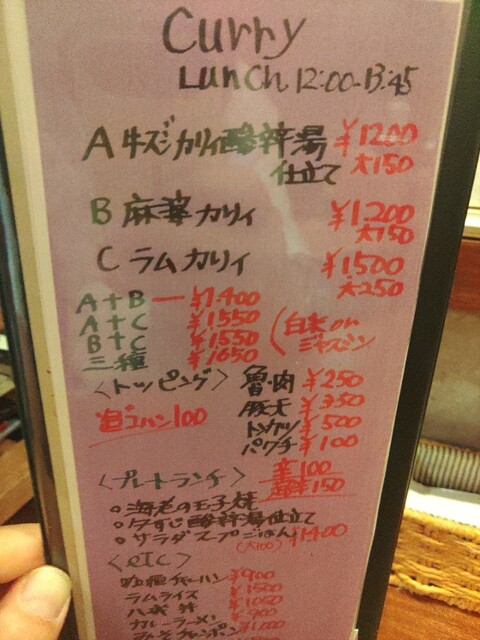 Curry
Lunch 12:00-13:45
A 牛スジカリィ酸辣湯 ¥1200
仕立て 大150
B 麻婆カリィ ¥1,200
大150
C ラムカリィ ¥1,500
大250
A+B — ¥1,400
A+C ¥1,550
B+C ¥1,550
三種 ¥1650
(白米or
ジャスミン
〈トッピング〉 魯肉 ¥250
豚天 ¥350
ゴハン100 トンカツ ¥500
パクチ ¥100
〈プレートランチ〉 辛100
¥150
○海老の玉子焼
○牛すじ酸辣湯仕立て
○サラダスープごはん ¥1400
(大100)
〈etc〉
チャーハン ¥900
ラムライス ¥1500
¥1050
カレーラーメン ¥900
¥1,000